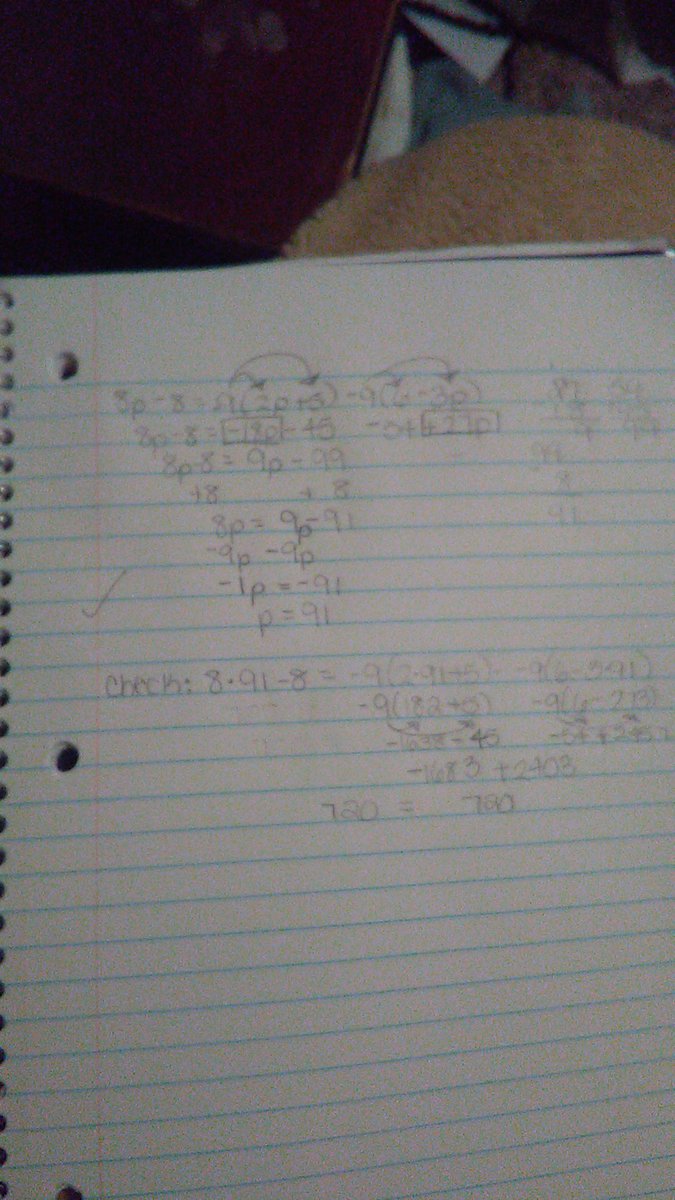 8p-8=-9(2p+5)-9(6-3p)
8p-8=-18p-45 -54+27p
8p-8=9p-99
+8 +8
8p=9p-91
-9p -9p
-1p=-91
p=91
check: 8·91-8= -9(2·91+5) -9(6-3·91)
-9(182+5) -9(6-273)
-1638-45 -54+2457
-1683+2403
720 = 720